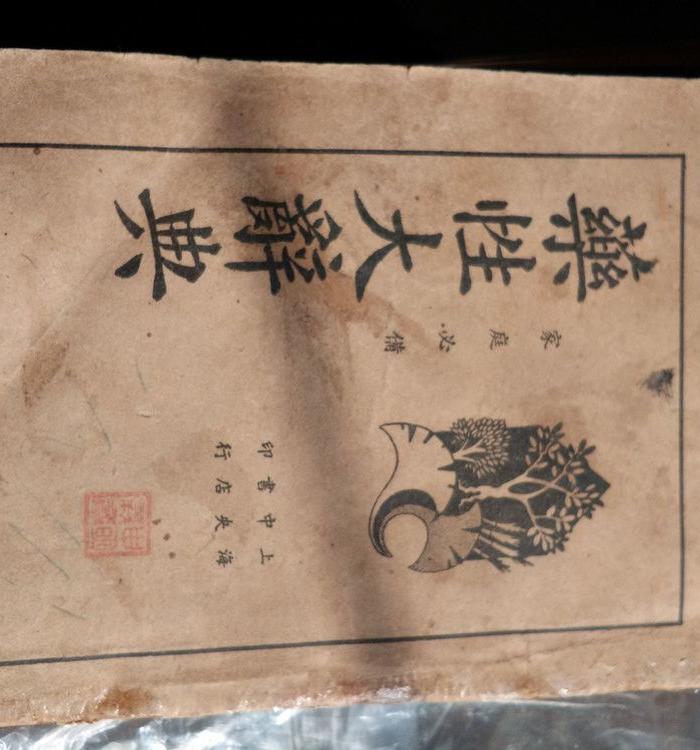 藥性大辭典
家庭必備
上海
中央
書店
印行